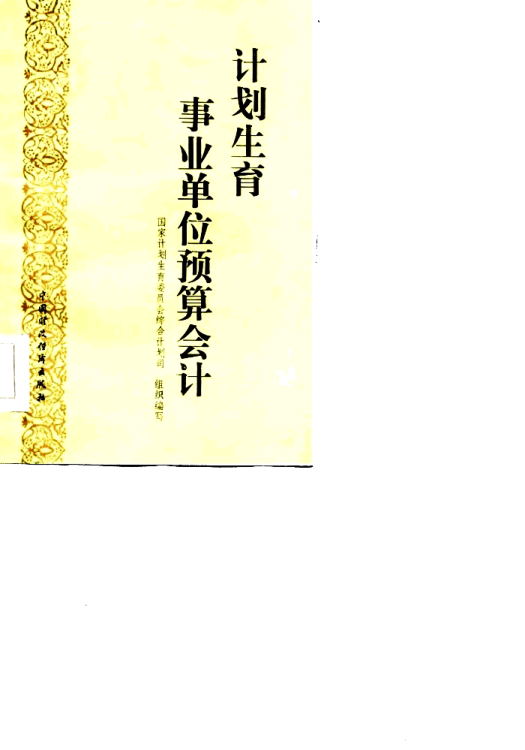 计划生育
事业单位预算会计
国家计划生育委员会综合计划司 组织编写
中国财政经济出版社